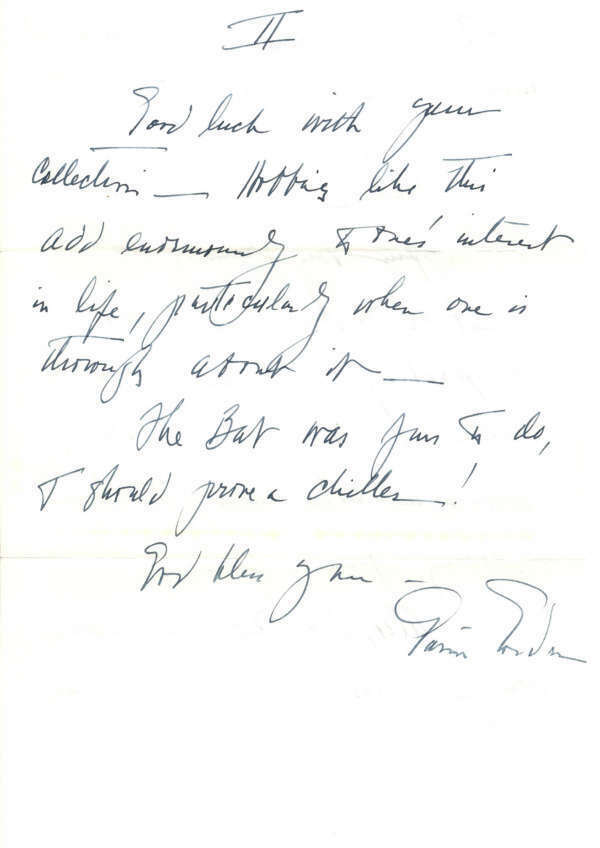 II
Good luck with your
Collection — Hobbies like this
add enormously to one's interest
in life, particularly when one is
thorough about it —
The Bat was fun to do,
& should prove a chiller!
God bless you —
Gavin Gordon